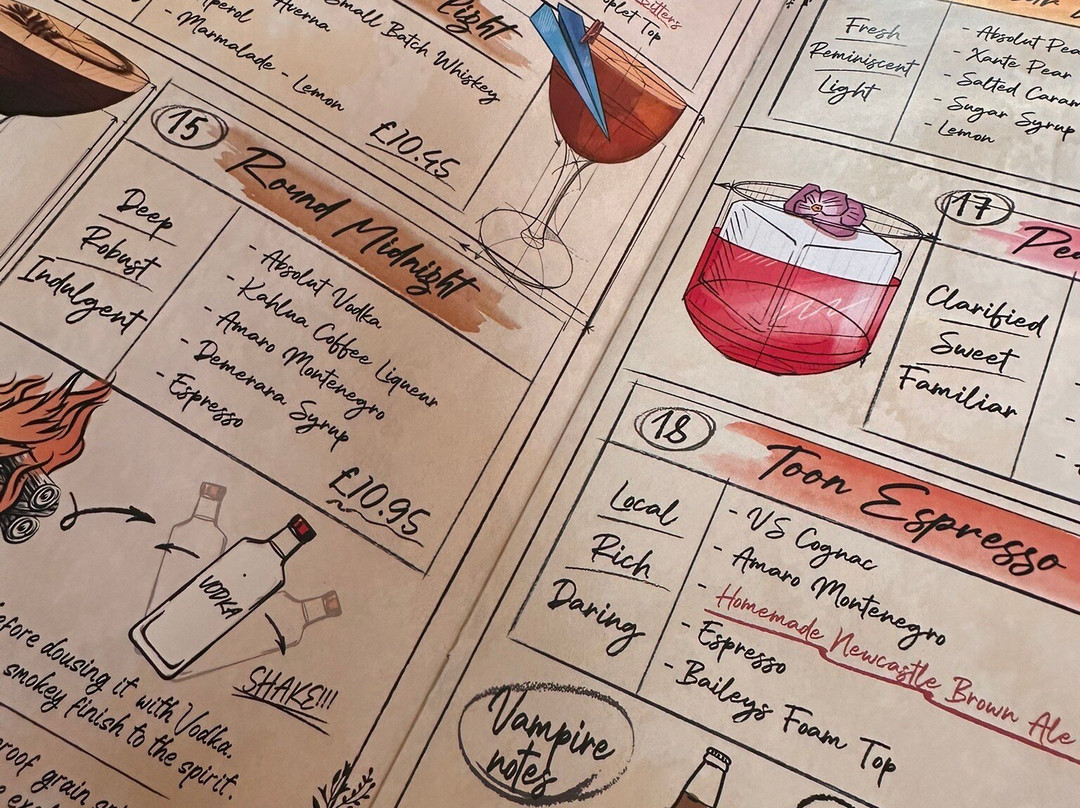 light
Small Batch Whiskey
Averna
- Marmalade - Lemon
£10.45
Bitters
Top
15
Round Midnight
Deep
Robust
Indulgent
- Absolut Vodka
- Kahlua Coffee Liqueur
- Amaro Montenegro
- Demerara Syrup
- Espresso
£10.95
VODKA
SHAKE!!!
before dousing it with Vodka.
smokey finish to the spirit.
proof grain
Fresh
Reminiscent
Light
- Absolut
- Xante Pear
- Salted
- Sugar Syrup
- Lemon
17
Clarified
Sweet
Familiar
18
Toon Espresso
Local
Rich
Daring
- VS Cognac
- Amaro Montenegro
- Homemade Newcastle Brown Ale
- Espresso
- Baileys Foam Top
Vampire
notes